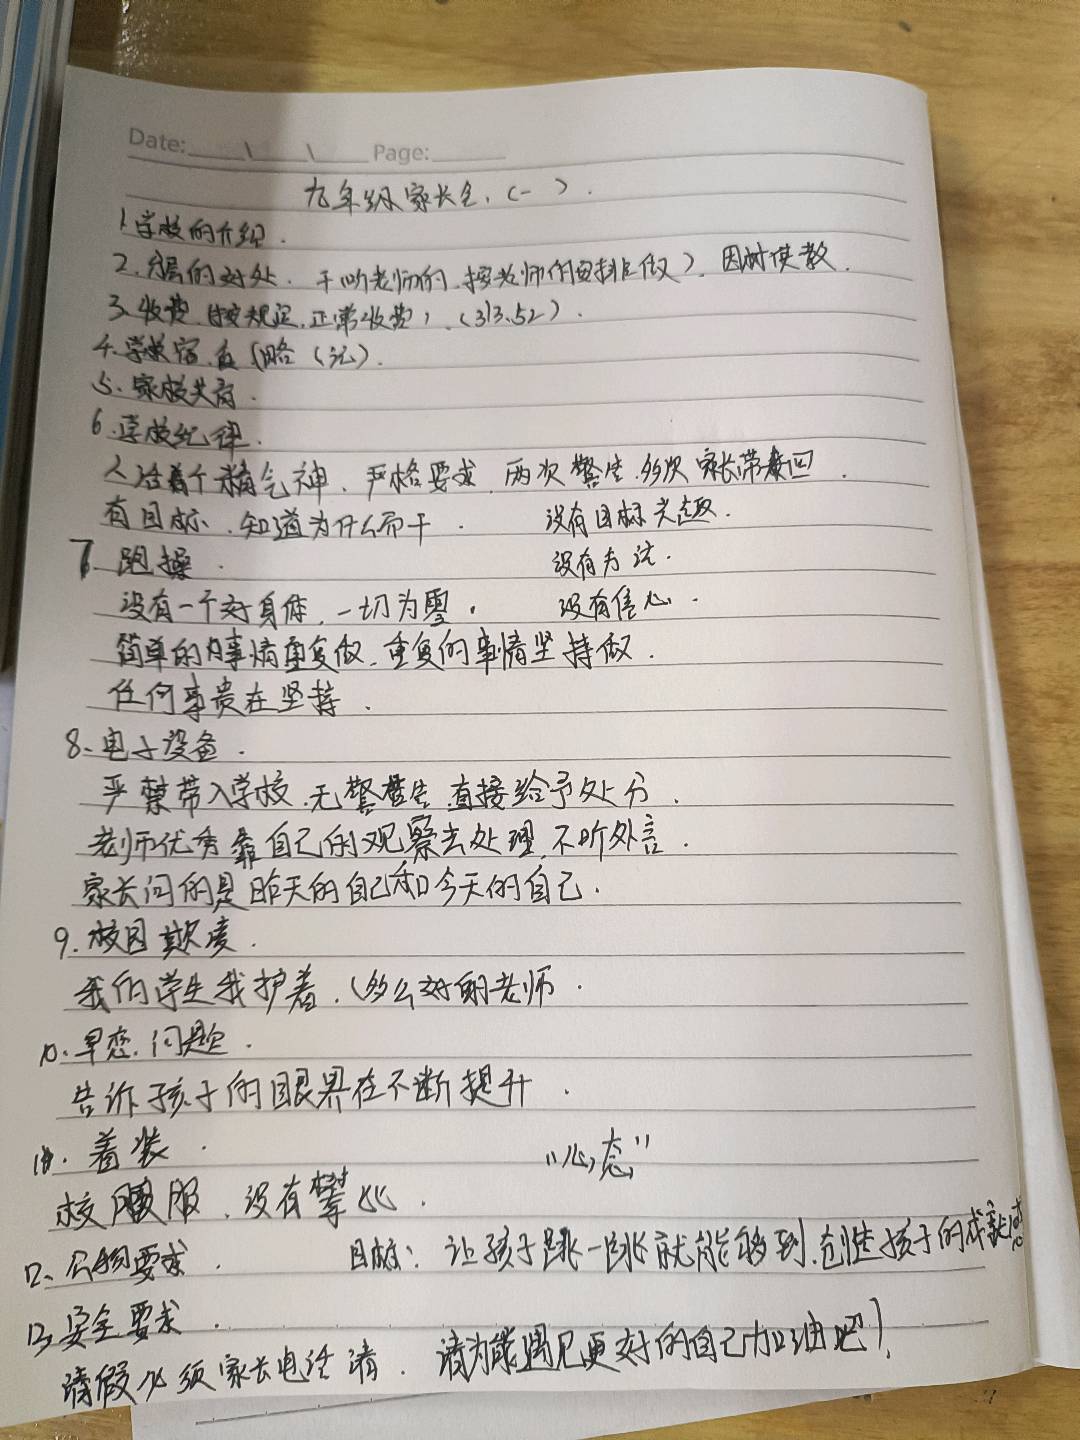 Date: \ \ Page:
九年级家长会.(一).
1.学校的介绍.
2. 的好处. 听老师的.按老师的安排做).因材使教.
3.收费.(按规定.正常收费).(313.52).
4.学 宿. (略
5.家校共育.
6.学校纪律.
人活着个精气神.严格要求.两次警告.多次家长带回.
有目标.知道为什么而干. 没有目标兴趣.
7.跑操. 没有方法.
没有一个好身体.一切为零. 没有信心.
简单的事情重复做.重复的事情坚持做.
任何事贵在坚持.
8.电子设备.
严禁带入学校.无警告直接给予处分.
老师优秀靠自己的观察去处理.不听外言.
家长问的是昨天的自己和今天的自己.
9.校园欺凌.
我的学生我护着.(多么好的老师.
10.早恋.问题.
告诉孩子的眼界在不断提升.
11.着装. "心态"
校服.没有攀比.
12.公物要求. 目标:让孩子跳一跳就能够到.创造孩子的成就感
13.安全要求.
请假必须家长电话请. 请为能遇见更好的自己加油吧!